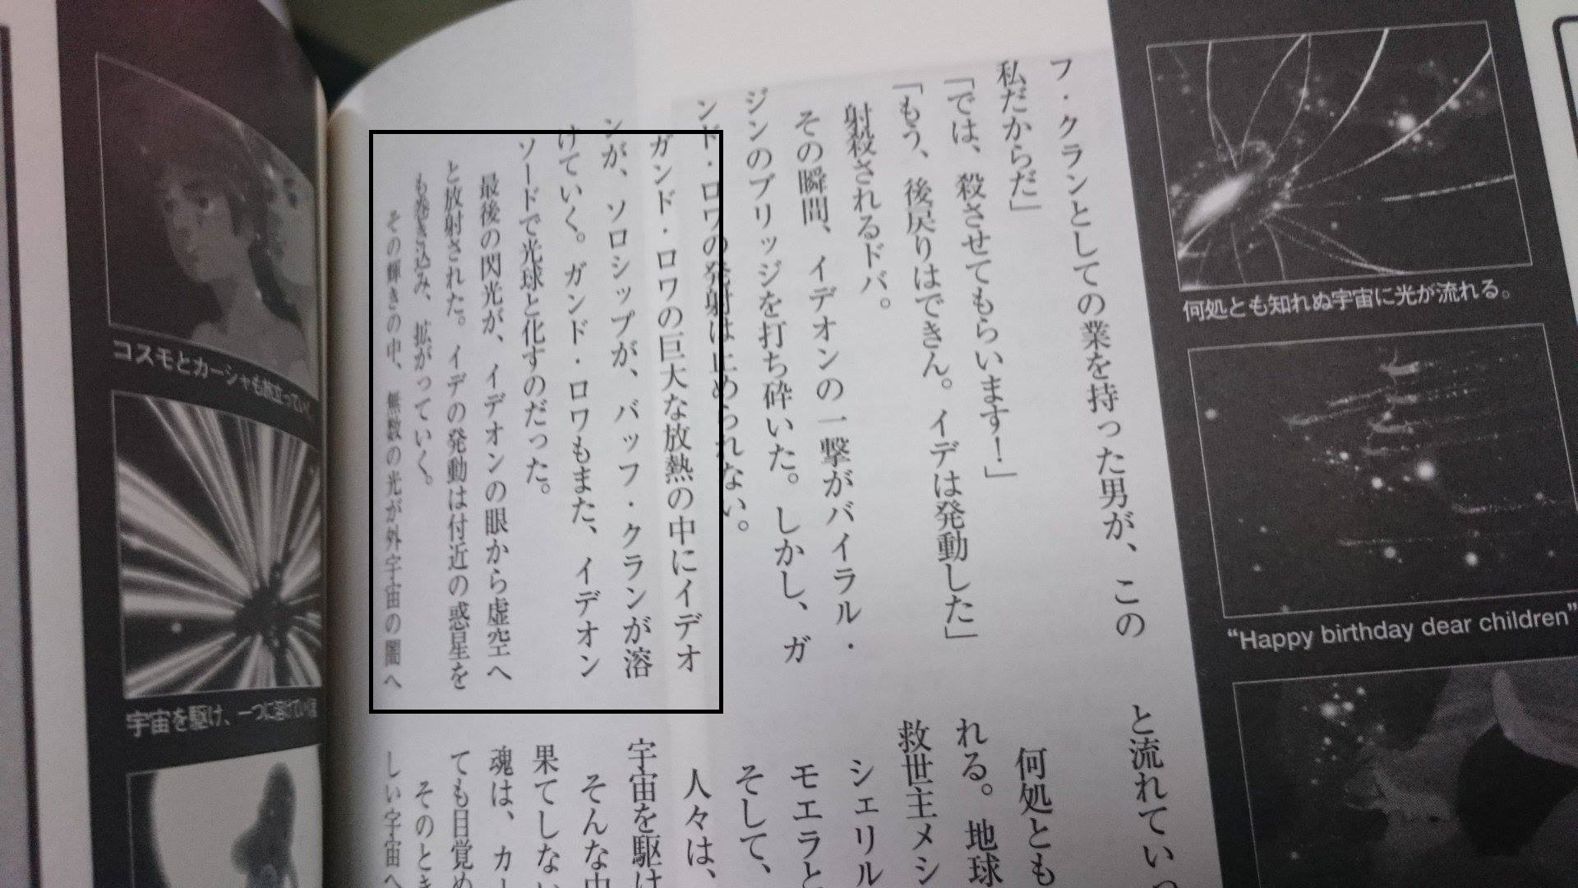 フ・クランとしての業を持った男が、この
私だからだ」
「では、殺させてもらいます！」
「もう、後戻りはできん。イデは発動した」
射殺されるドバ。
その瞬間、イデオンの一撃がバイラル・
ジンのブリッジを打ち砕いた。しかし、ガ
ンド・ロワの発射は止められない。
ガンド・ロワの巨大な放熱の中にイデオ
ンが、ソロシップが、バッフ・クランが溶
けていく。ガンド・ロワもまた、イデオン
ソードで光球と化すのだった。
最後の閃光が、イデオンの眼から虚空へ
と放射された。イデの発動は付近の惑星を
も巻き込み、拡がっていく。
その輝きの中、無数の光が外宇宙の闇へ
と流れてい
何処とも
れる。地球
救世主メシ
シェリル
モエラと
そして、
人々は、
宇宙を駆け
そんな中
果てしない
魂は、カー
ても目覚め
そのとき
しい宇宙へ
何処とも知れぬ宇宙に光が流れる。
“Happy birthday dear children”
コスモとカーシャも旅立っていく
宇宙を駆け、一つに溶けていく